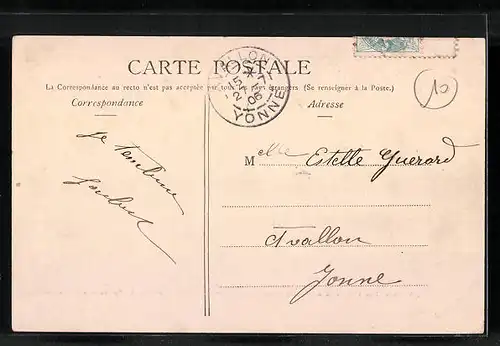 CARTE POSTALE
La Correspondance au recto n'est pas acceptée par tous les pays étrangers (Se renseigner à la Poste.)
Correspondance
Adresse
AVALLON
YONNE
10
Je
Mlle Estelle Guerard
Avallon
Yonne